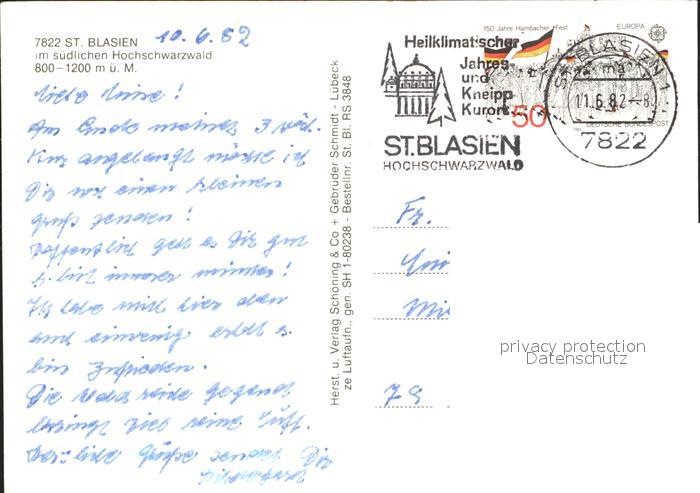 7822 ST. BLASIEN 10.6.82
im südlichen Hochschwarzwald
800–1200 m ü. M.
Liebe !
Am Ende meiner 3 wöch.
Kur angelangt möchte ich
Dir nur einen kleinen
Gruß senden!
Hoffentlich geht es Dir gut
u. bist immer munter!
Ich habe mich hier
und einwenig erholt u.
bin zufrieden.
Die reine Gegend
bringt viel reine Luft.
Herzliche Grüße sendet Dir
Herst. u. Verlag Schöning & Co + Gebrüder Schmidt - Lübeck
ze Luftaufn., gen. SH 1-80238 - Bestellnr. St. Bl. RS 3848
Heilklimatischer
Jahres-
und
Kneipp
Kurort
ST.BLASIEN
HOCHSCHWARZWALD
150 Jahre Hambacher Fest
EUROPA
50
DEUTSCHE BUNDESPOST
ST. BLASIEN 1
11.6.82-8
7822
Fr.
privacy protection
Datenschutz